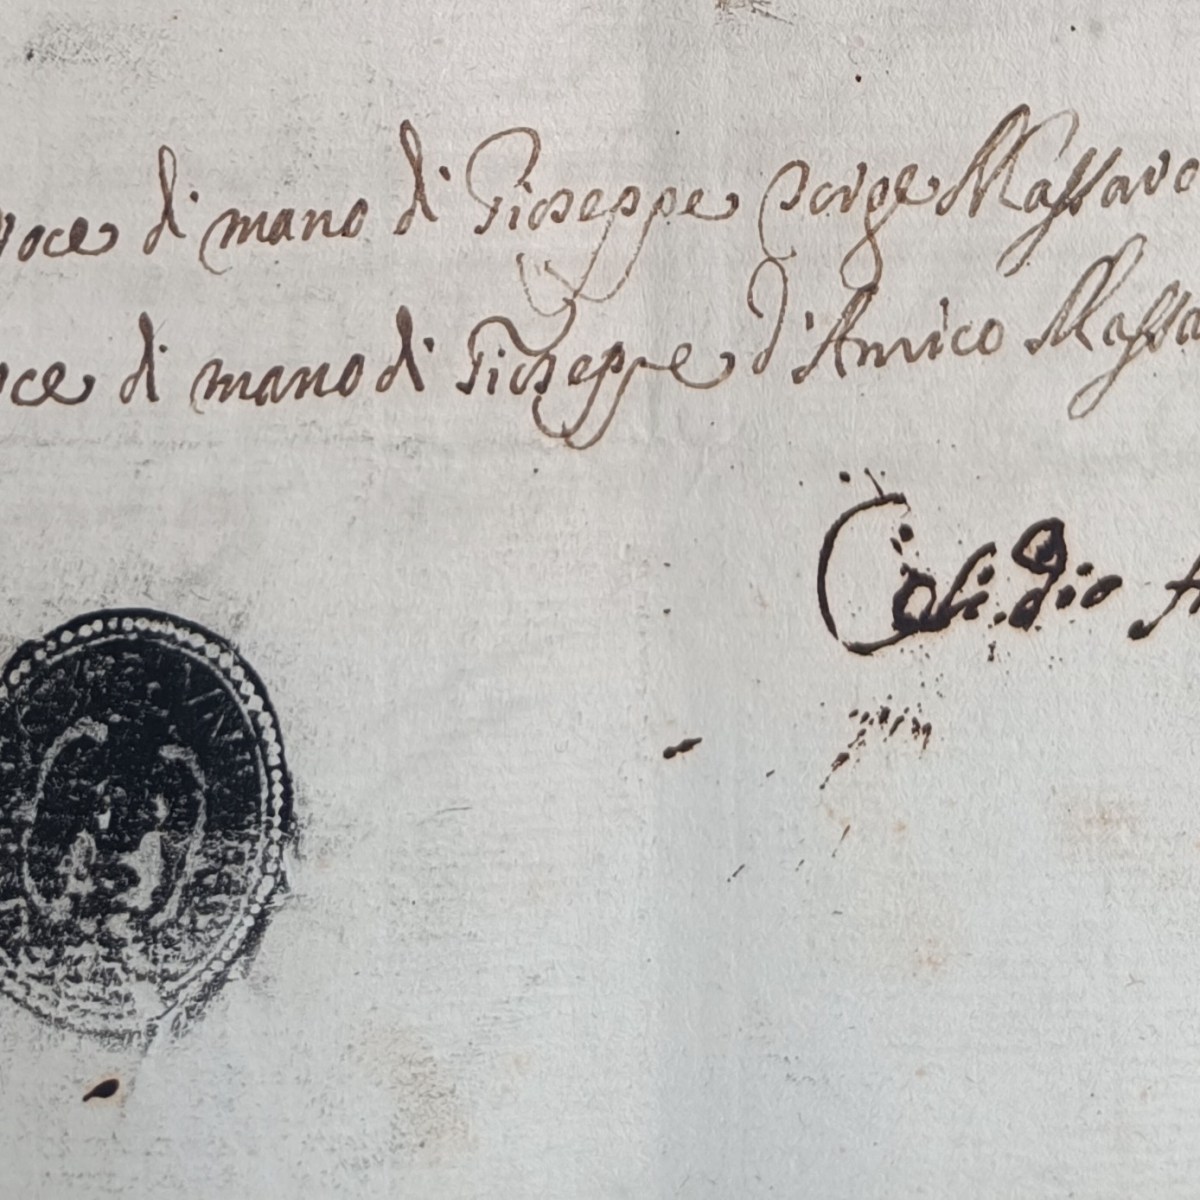 roce di mano di Gioseppe sorge Massaro
oce di mano di Gioseppe d'Amico Massa